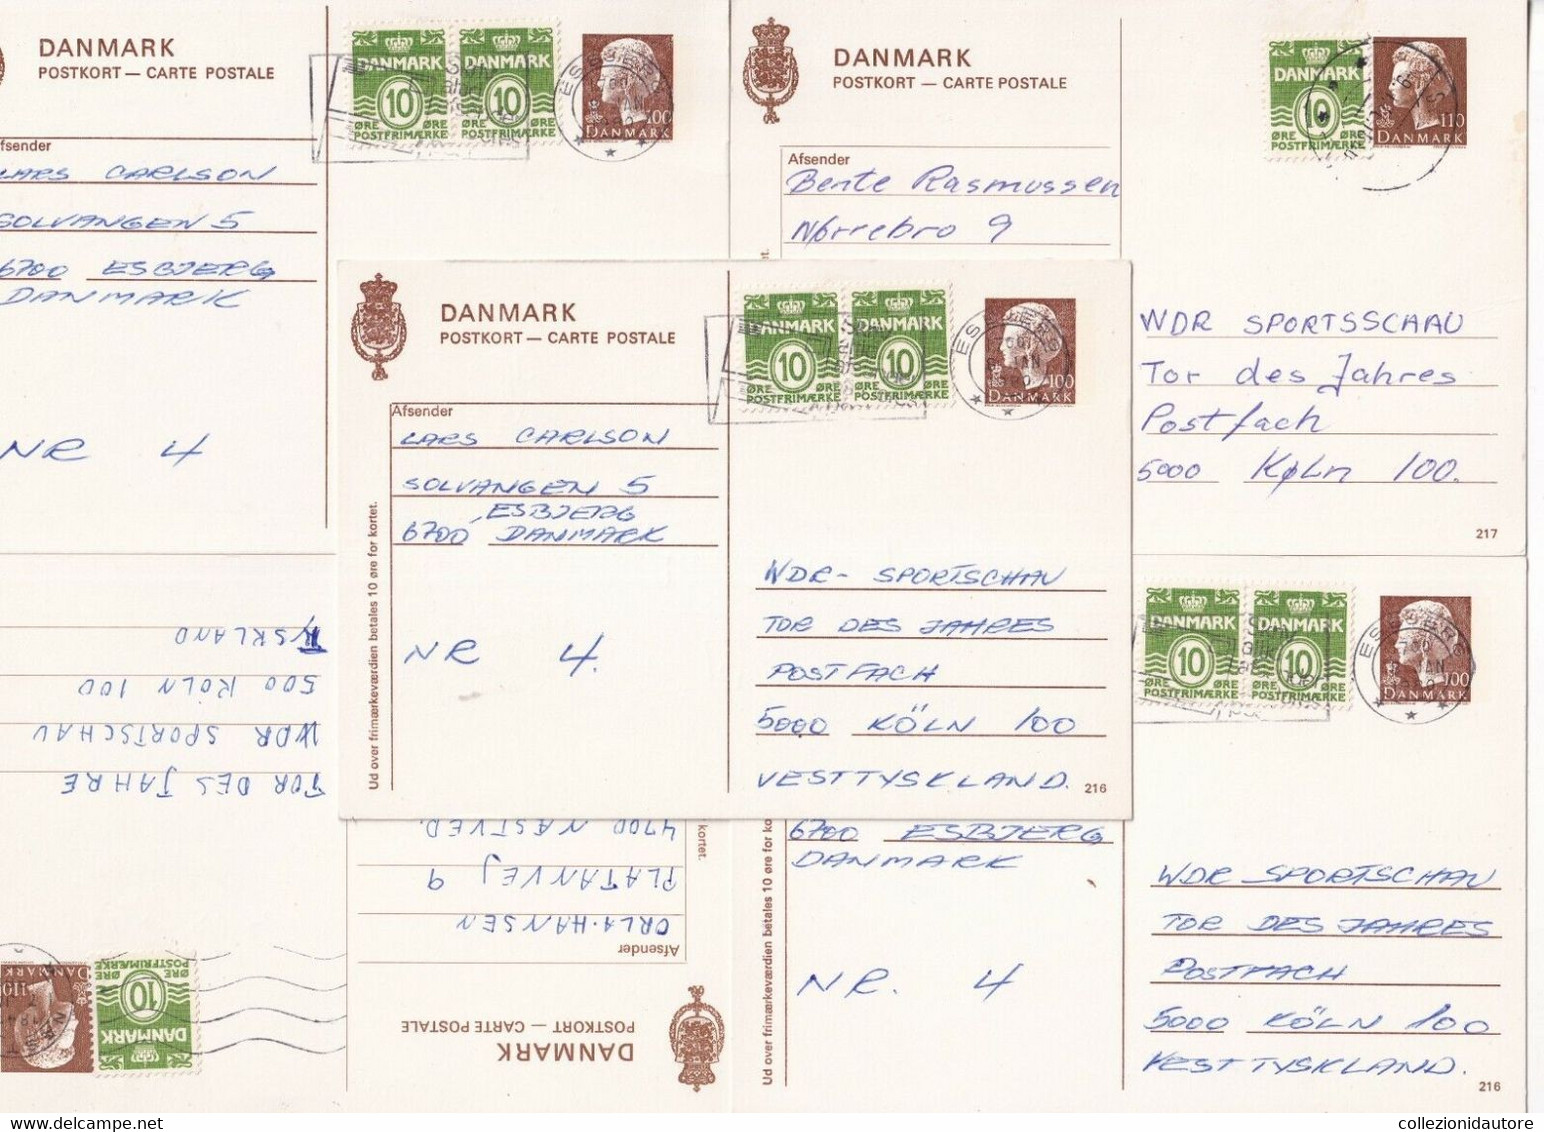 DANMARK
POSTKORT — CARTE POSTALE
fsender
LARS CARLSON
SOLVANGEN 5
6700 ESBJERG
DANMARK
NR 4
DANMARK
10
ØRE ØRE
POSTFRIMÆRKE
DANMARK
10
ØRE ØRE
POSTFRIMÆRKE
ESBJERG
DANMARK
DANMARK
POSTKORT — CARTE POSTALE
Afsender
Bente Rasmussen
Nørrebro 9
DANMARK
10
ØRE ØRE
POSTFRIMÆRKE
110
DANMARK
WDR SPORTSSCHAU
Tor des Jahres
Postfach
5000 Køln 100.
217
DANMARK
POSTKORT — CARTE POSTALE
Afsender
LARS CARLSON
SOLVANGEN 5
ESBJERG
6700 DANMARK
NR 4.
Ud over frimærkeværdien betales 10 øre for kortet.
DANMARK
10
ØRE ØRE
POSTFRIMÆRKE
DANMARK
10
ØRE ØRE
POSTFRIMÆRKE
ESBJERG
100
DANMARK
WDR - SPORTSCHAU
TOR DES JAHRES
POSTFACH
5000 KÖLN 100
VESTTYSKLAND.
216
DANMARK
10
ØRE ØRE
POSTFRIMÆRKE
DANMARK
10
ØRE ØRE
POSTFRIMÆRKE
ESBJERG
100
DANMARK
6700 ESBJERG
DANMARK
NR. 4
Ud over frimærkeværdien betales 10 øre for ko
WDR SPORTSCHAU
TOR DES JAHRES
POSTFACH
5000 KÖLN 100
VESTTYSKLAND.
216
DANMARK
POSTKORT — CARTE POSTALE
Afsender
ORLA HANSEN
PLATANVEJ 9
4700 NÆSTVED.
kortet.
DANMARK
10
ØRE ØRE
POSTFRIMÆRKE
110
DANMARK
TOR DES JAHRE
WDR SPORTSCHAU
500 KOLN 100
TYSKLAND
collezionidautore